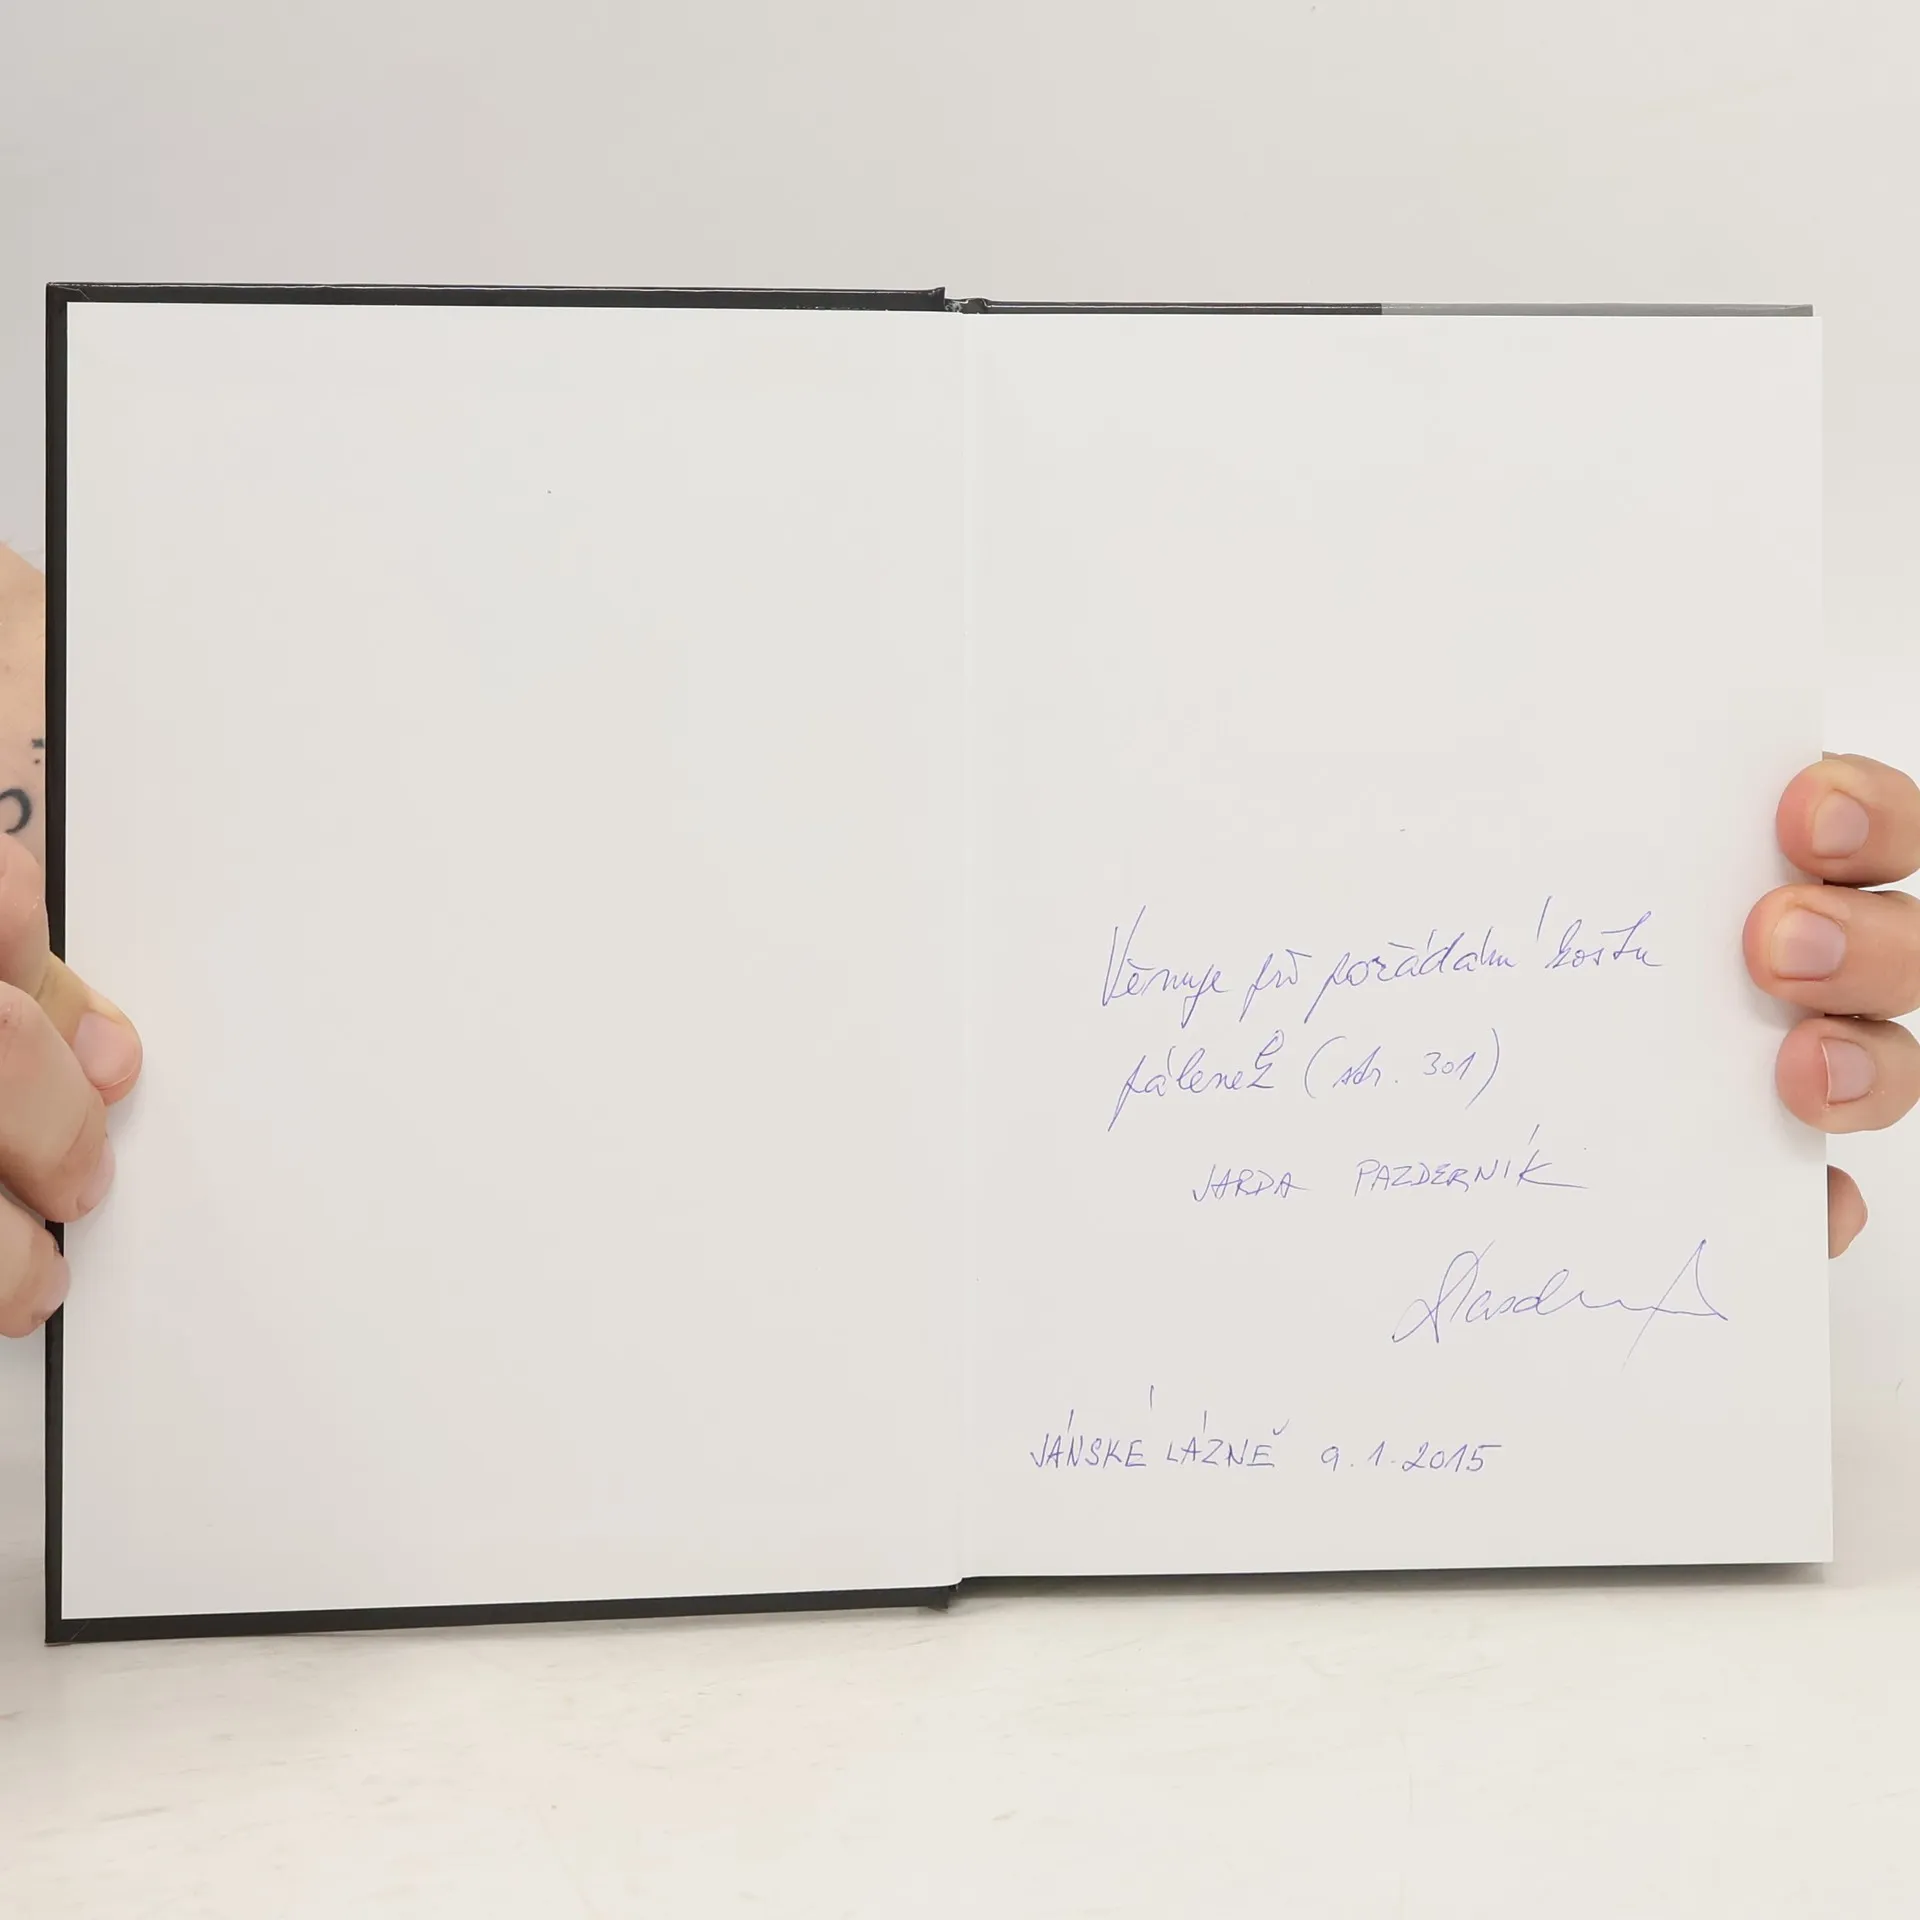 Věnuje při pořádání koštu
pálenek (str. 301)
JARDA PAZDERNÍK
JÁNSKÉ LÁZNĚ 9.1.2015